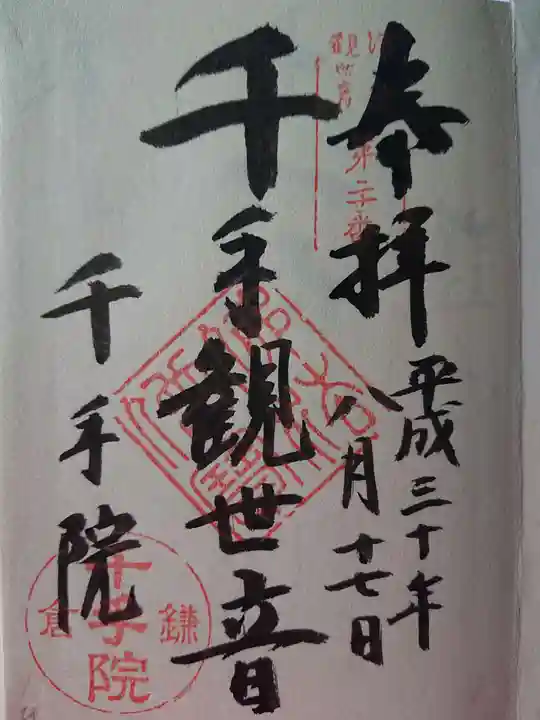 奉拝
平成三十年
八月十七日
千手観世音
千手院
第二十番
鎌倉
千手院